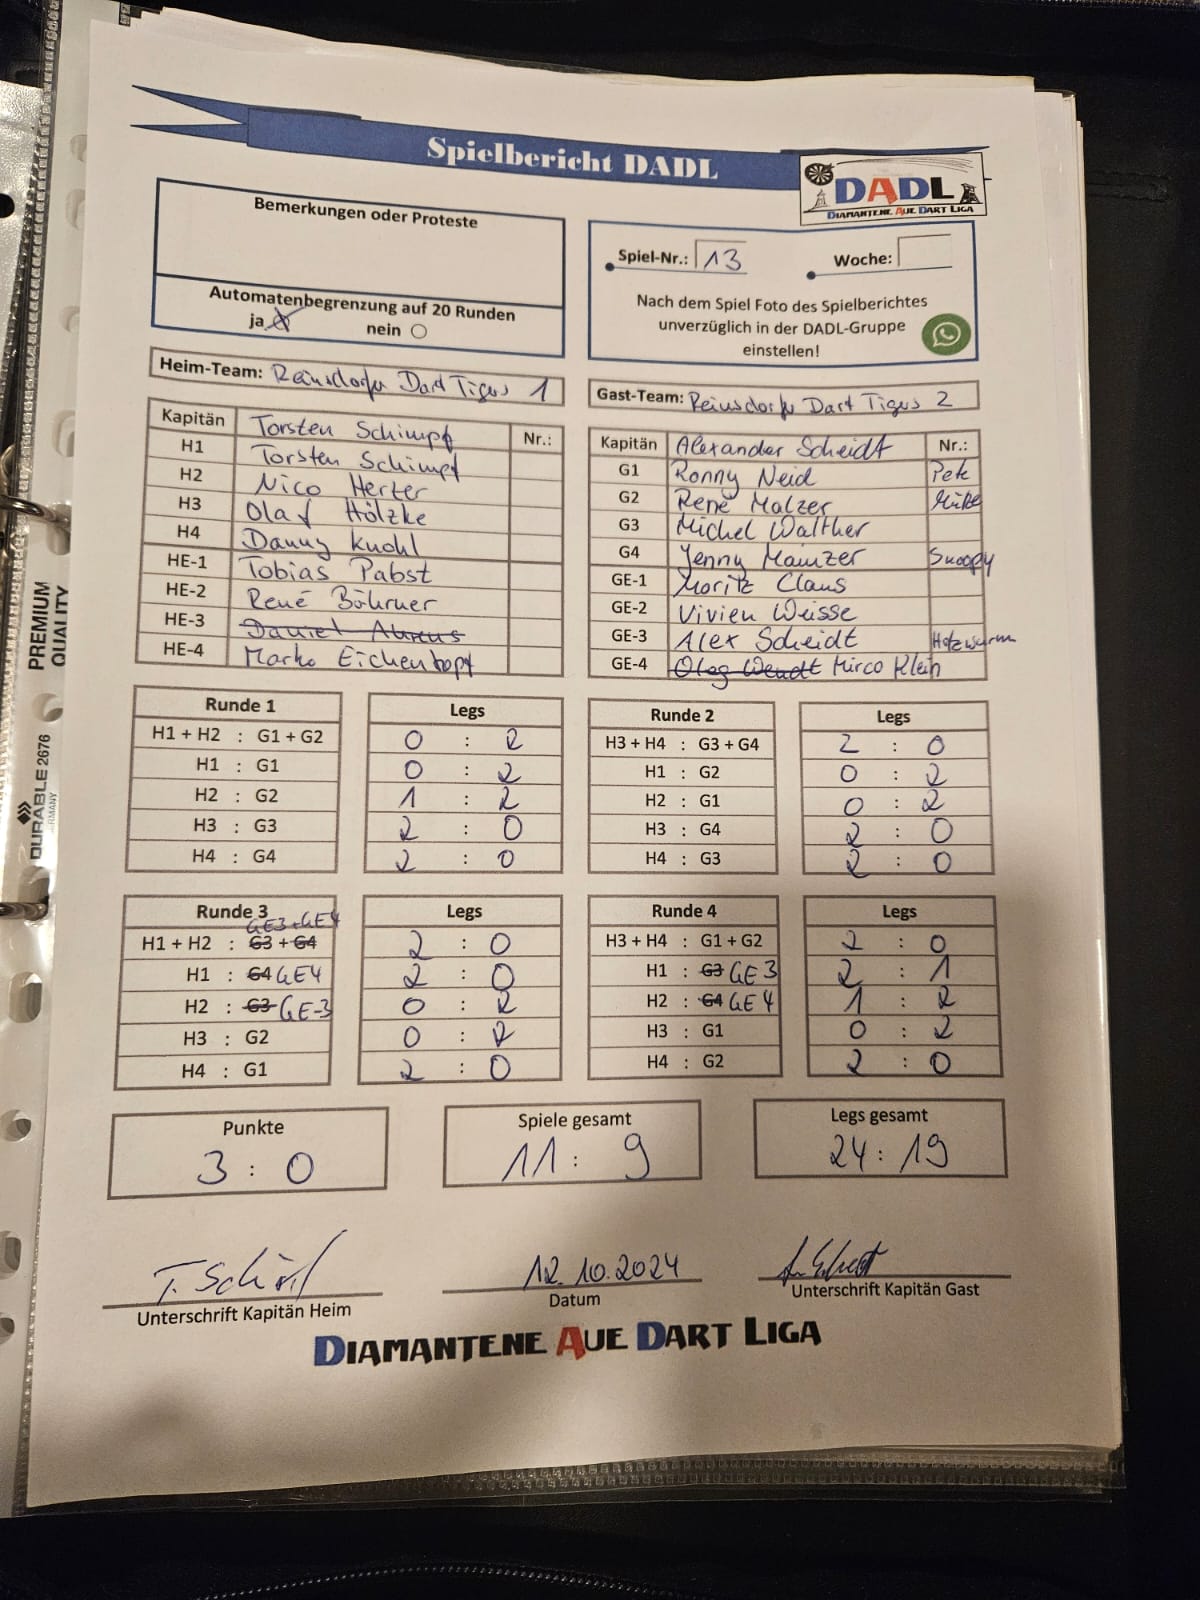 Spielbericht DADL
DADL
DIAMANTENE AUE DART LIGA
Bemerkungen oder Proteste
Automatenbegrenzung auf 20 Runden
ja nein
Spiel-Nr.: 13 Woche:
Nach dem Spiel Foto des Spielberichtes
unverzüglich in der DADL-Gruppe
einstellen!
Heim-Team: Reinsdorfer Dart Tigers 1
Kapitän Torsten Schimpf Nr.:
H1 Torsten Schimpf
H2 Nico Herter
H3 Olaf Hölzke
H4 Danny Knohl
HE-1 Tobias Pabst
HE-2 René Böhrner
HE-3 Daniel Ahrens
HE-4 Marko Eichentopf
Gast-Team: Reinsdorfer Dart Tigers 2
Kapitän Alexander Scheidt Nr.:
G1 Ronny Neid Pete
G2 René Malzer
G3 Michel Walther
G4 Jenny Mainzer Snoopy
GE-1 Moritz Claus
GE-2 Vivien Weisse
GE-3 Alex Scheidt Holzwurm
GE-4 Oleg Wendt Mirco Klein
Runde 1 Legs
H1 + H2 : G1 + G2 0 : 2
H1 : G1 0 : 2
H2 : G2 1 : 2
H3 : G3 2 : 0
H4 : G4 2 : 0
Runde 2 Legs
H3 + H4 : G3 + G4 2 : 0
H1 : G2 0 : 2
H2 : G1 0 : 2
H3 : G4 2 : 0
H4 : G3 2 : 0
Runde 3 Legs
GE3+GE4
H1 + H2 : G3 + G4 2 : 0
H1 : G4 GE4 2 : 0
H2 : G3 GE-3 0 : 2
H3 : G2 0 : 2
H4 : G1 2 : 0
Runde 4 Legs
H3 + H4 : G1 + G2 2 : 0
H1 : G3 GE3 2 : 1
H2 : G4 GE4 1 : 2
H3 : G1 0 : 2
H4 : G2 2 : 0
Punkte
3 : 0
Spiele gesamt
11 : 9
Legs gesamt
24 : 19
12.10.2024
Unterschrift Kapitän Heim
Datum
Unterschrift Kapitän Gast
DIAMANTENE AUE DART LIGA
PREMIUM
QUALITY
DURABLE 2676